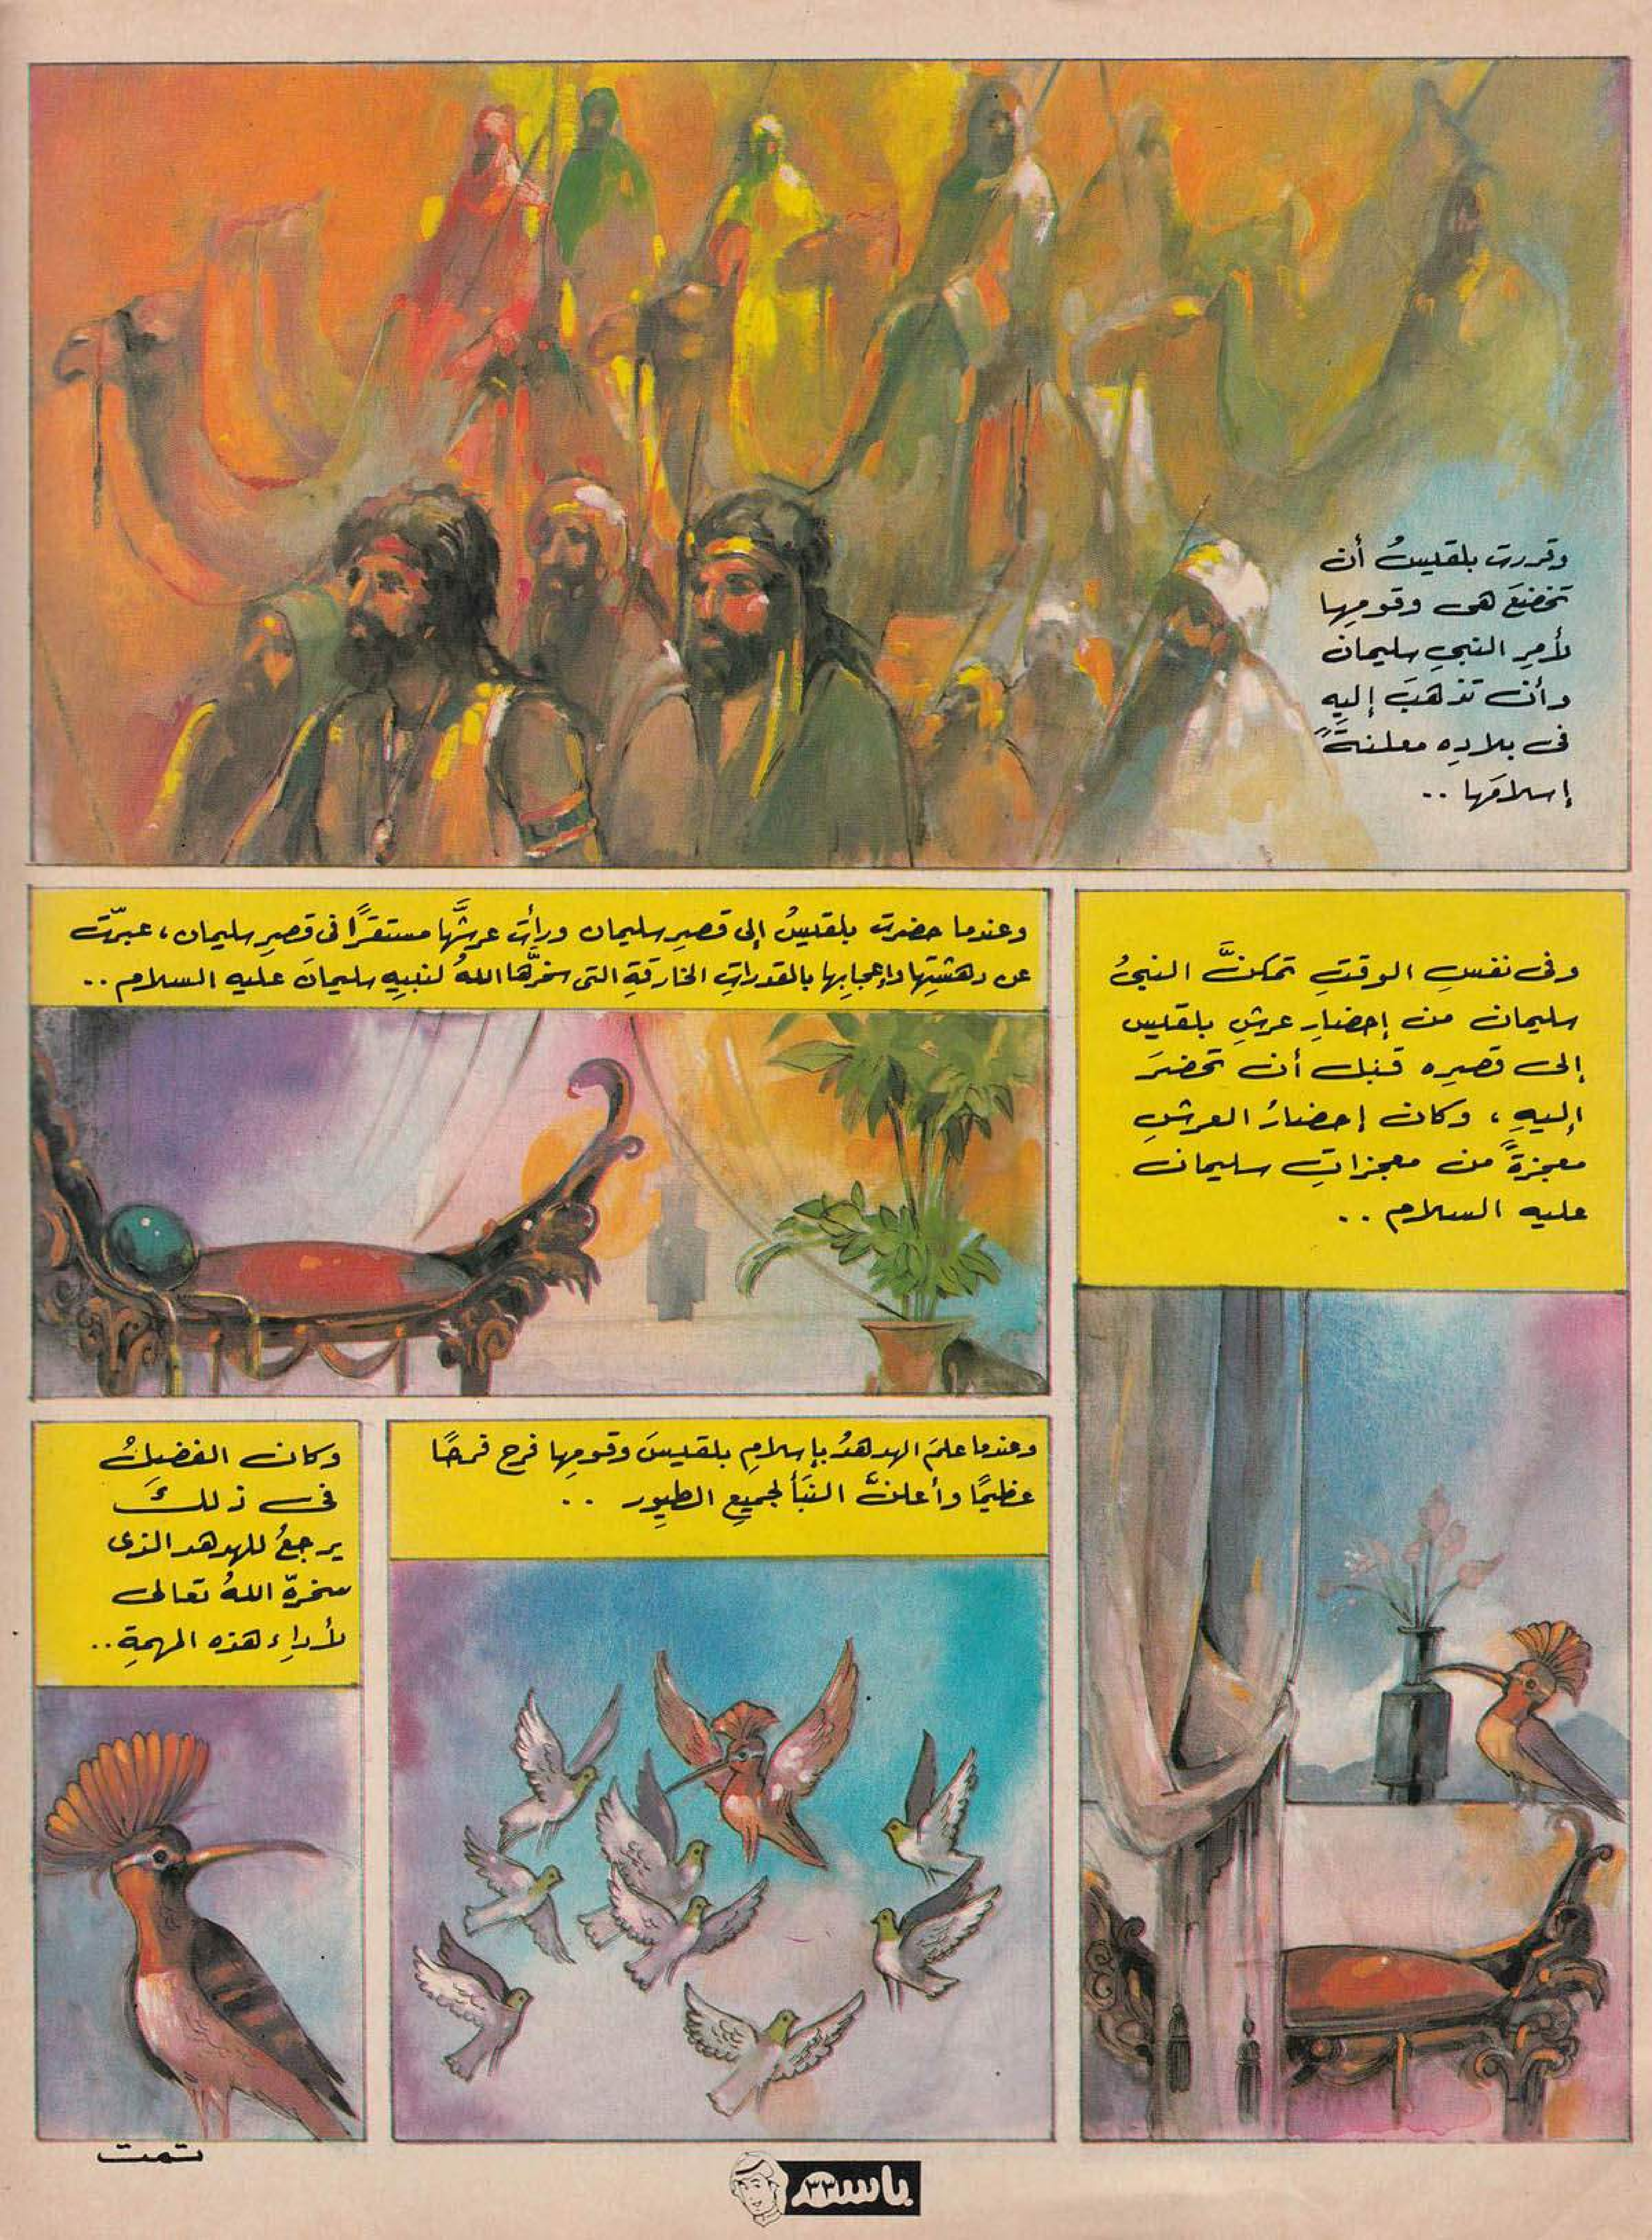 وقررت بلقيسُ أن
تخضعَ هى وقومِها
لأمرِ النبيِ سليمان
وأن تذهبَ إليهِ
فى بلادِه معلنةً
إسلامَها ..
وفى نفسِ الوقتِ تمكنَّ النبىُ
سليمان من إحضارِ عرشِ بلقيس
إلى قصرِه قبل أن تحضرَ
إليهِ ، وكان إحضارُ العرشِ
معجزةً من معجزاتِ سليمان
عليه السلام ..
وعندما حضرت بلقيسُ إلى قصرِ سليمان ورأت عرشَها مستقرًا فى قصرِ سليمان ، عبرّت
عن دهشتِها وإعجابِها بالقدراتِ الخارقةِ التى سخرَّها اللهُ لنبيِه سليمانَ عليه السلام ..
وعندما علمَ الهدهدُ بإسلامِ بلقيسَ وقومِها فرح فرحًا
عظيمًا وأعلنَّ النبَأ لجميعِ الطيورِ ..
وكان الفضلُ
فى ذلكَ
يرجعُ للهدهد الذى
سخرهّ اللهُ تعالى
لأداءِ هذه المهمةِ ..
تمت
باسم
٣٣